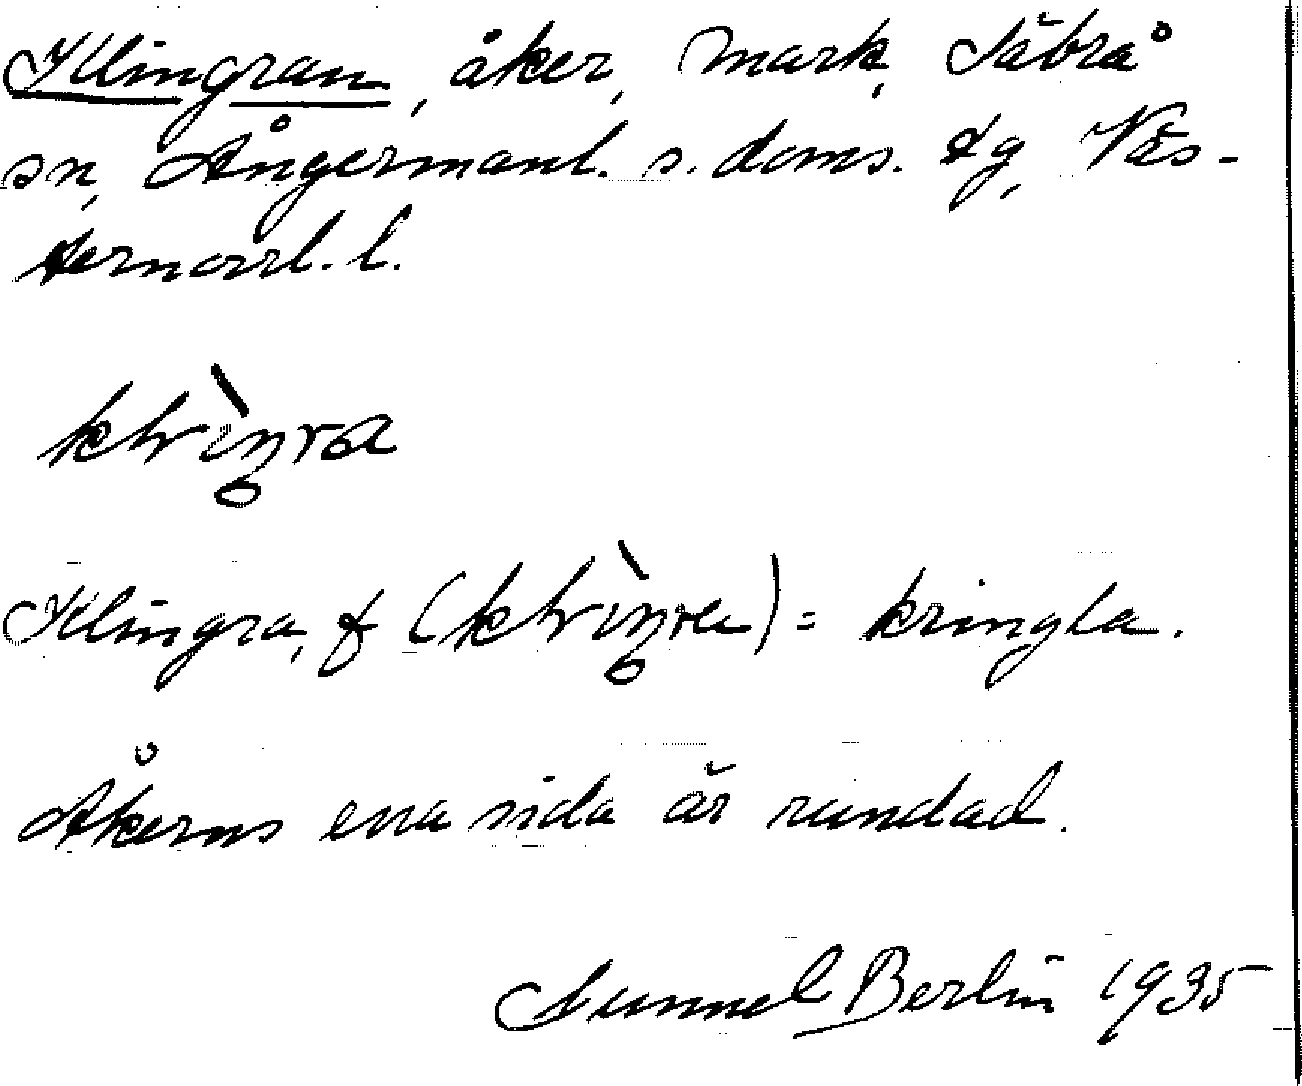 Klingran, åker, Mark, Säbrå
sn, Ångermanl. s. doms. tg, Väs-
ternorrl. l.
Klingra, f = kringla.
Åkerns ena sida är rundad.
Gunnel Berlin 1935